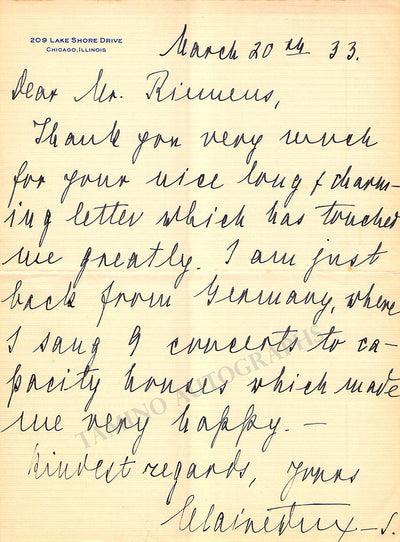 209 LAKE SHORE DRIVE
CHICAGO, ILLINOIS
March 20th 33.
Dear Mr. Riemens,
Thank you very much
for your nice long & charm-
ing letter which has touched
me greatly. I am just
back from Germany, where
I sang 9 concerts to ca-
pacity houses which made
me very happy. —
Kindest regards, yours
Claire Dux – S.
TAMINO AUTOGRAPHS